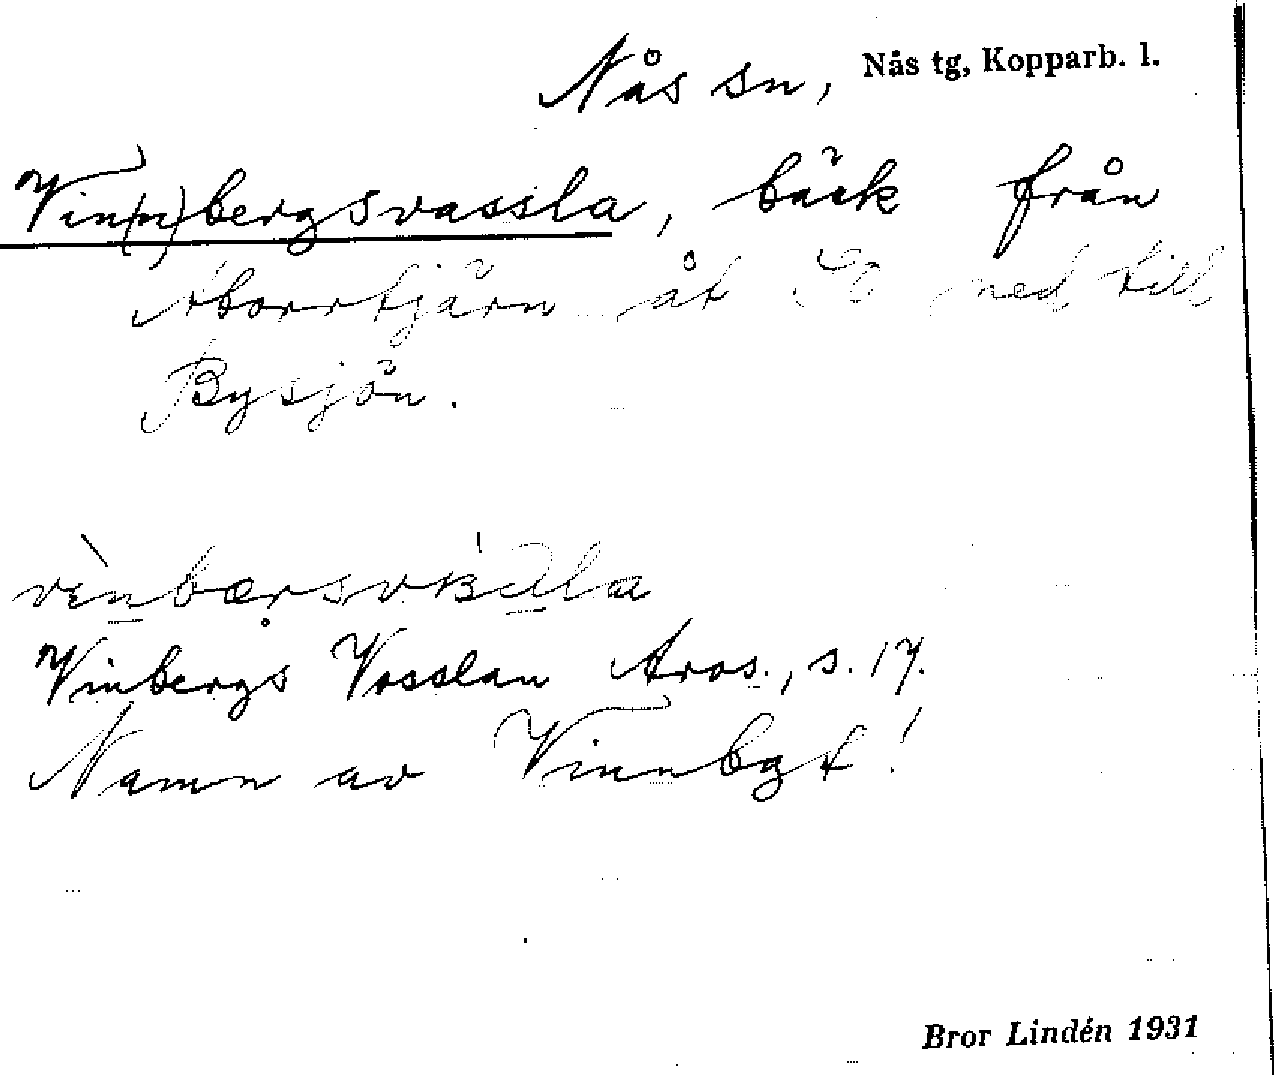 Nås sn, Nås tg, Kopparb. l.
Vin(n)bergsvassla, bäck från
Aborrtjärn åt SO ned till
Bysjön.
Vinbergs Vasslan Aros., s. 17.
Namn av Vinnbgt!
Bror Lindén 1931